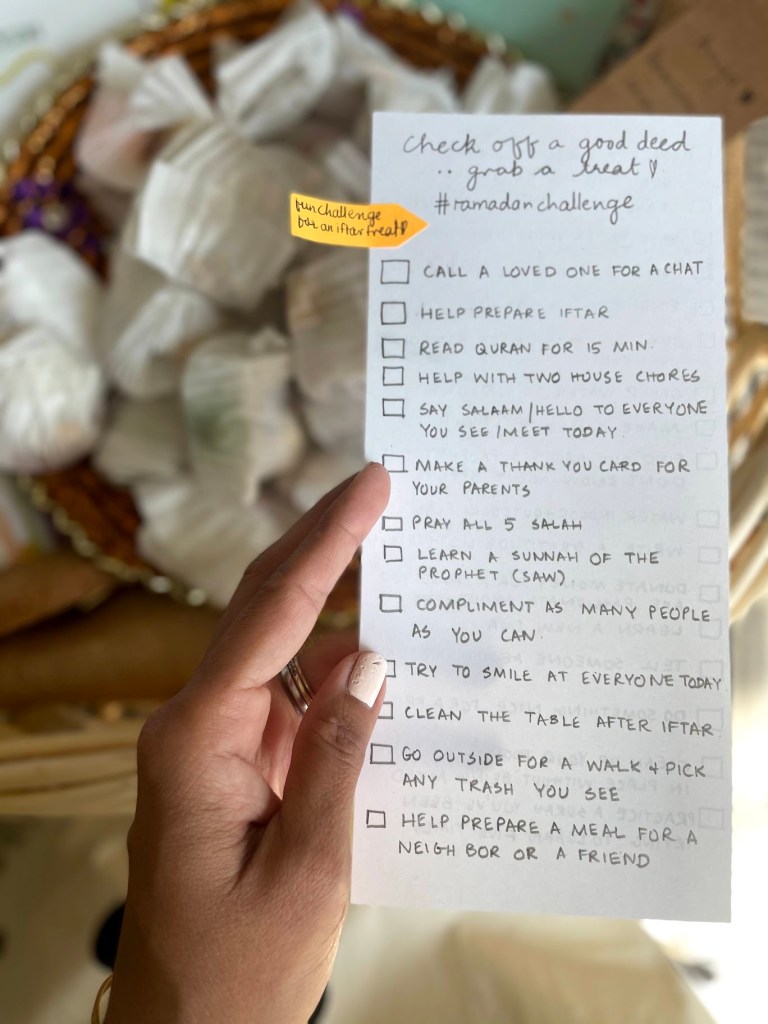 check off a good deed
.. grab a treat
#ramadanchallenge
fun challenge
for an iftar treat
CALL A LOVED ONE FOR A CHAT
HELP PREPARE IFTAR
READ QURAN FOR 15 MIN.
HELP WITH TWO HOUSE CHORES
SAY SALAAM/HELLO TO EVERYONE
YOU SEE/MEET TODAY.
MAKE A THANK YOU CARD FOR
YOUR PARENTS
PRAY ALL 5 SALAH
LEARN A SUNNAH OF THE
PROPHET (SAW)
COMPLIMENT AS MANY PEOPLE
AS YOU CAN.
TRY TO SMILE AT EVERYONE TODAY
CLEAN THE TABLE AFTER IFTAR.
GO OUTSIDE FOR A WALK & PICK
ANY TRASH YOU SEE
HELP PREPARE A MEAL FOR A
NEIGHBOR OR A FRIEND